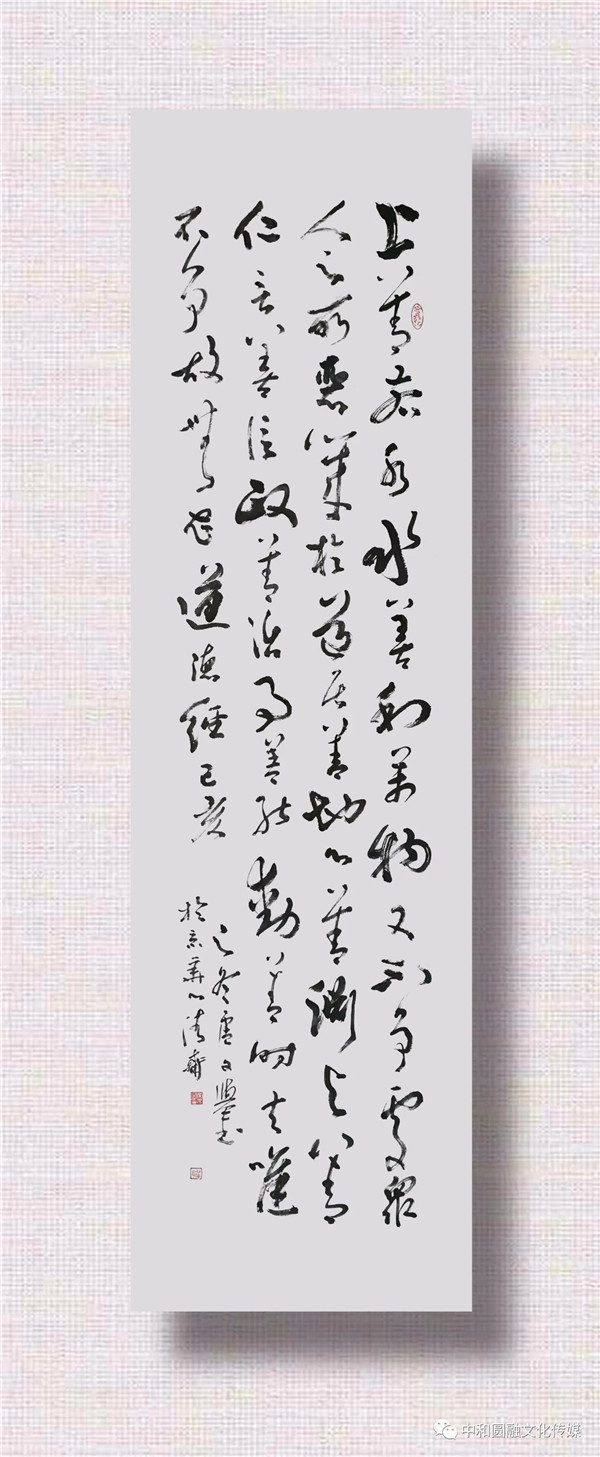 上善若水水善利萬物又不爭處眾
人之所惡幾於道居善地心善淵与善
仁言善信政善治事善能動善時夫唯
不爭故無尤道德經己亥
之冬盧文書
於京華心清齋
中和圆融文化传媒